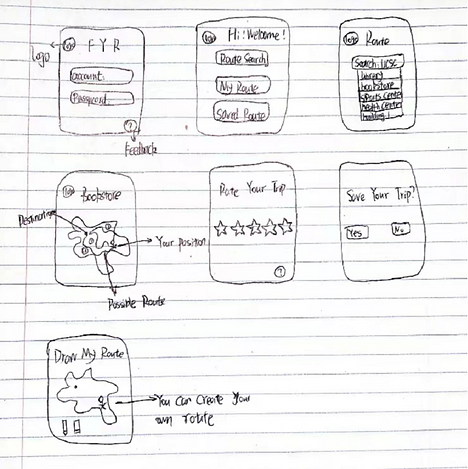 logo
logo
F Y R
account.
Password
?
Feedback
logo
Hi! Welcome!
Route Search
My Route
Saved Route
logo
Route
Search: UCSC
library
bookstore
sports Center
Health Center
building 1
logo
Bookstore
Destination
Your position
Possible Route
Rate Your Trip
?
Save Your Trip?
Yes
No
Draw My Route
You can create your
own route